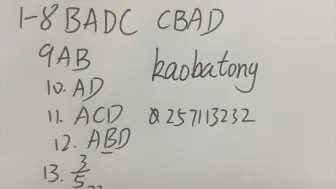 1-8 BADC CBAD
9 AB
kaobatong
10. AD
11. ACD
Q257113232
12. ABD
13. 3/5